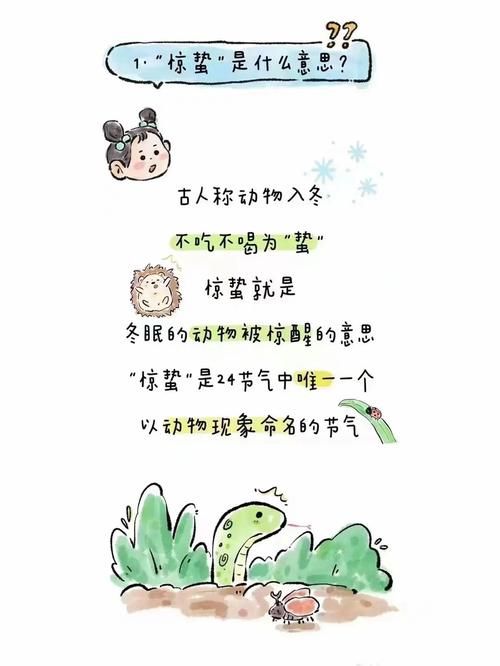 ??
1·"惊蛰"是什么意思?
古人称动物入冬
不吃不喝为"蛰"
惊蛰就是
冬眠的动物被惊醒的意思
"惊蛰"是24节气中唯一一个
以动物现象命名的节气